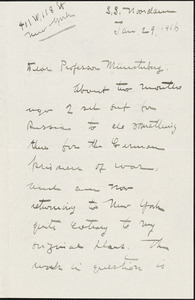 411 W. 118 St
New York
S.S. Noordam
Jan 29, 1916
Dear Professor Münsterberg
About two months
ago I set out for
Russia to do something
there for the German
prisoners of war,
and am now
returning to New York
quite contrary to my
original plans. The
work in question is